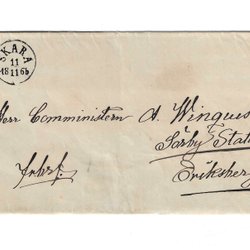 SKARA
11
18 11 65
Herr Comministern A. Wingqvis
Särby Stat
frbrf.
Eriksber